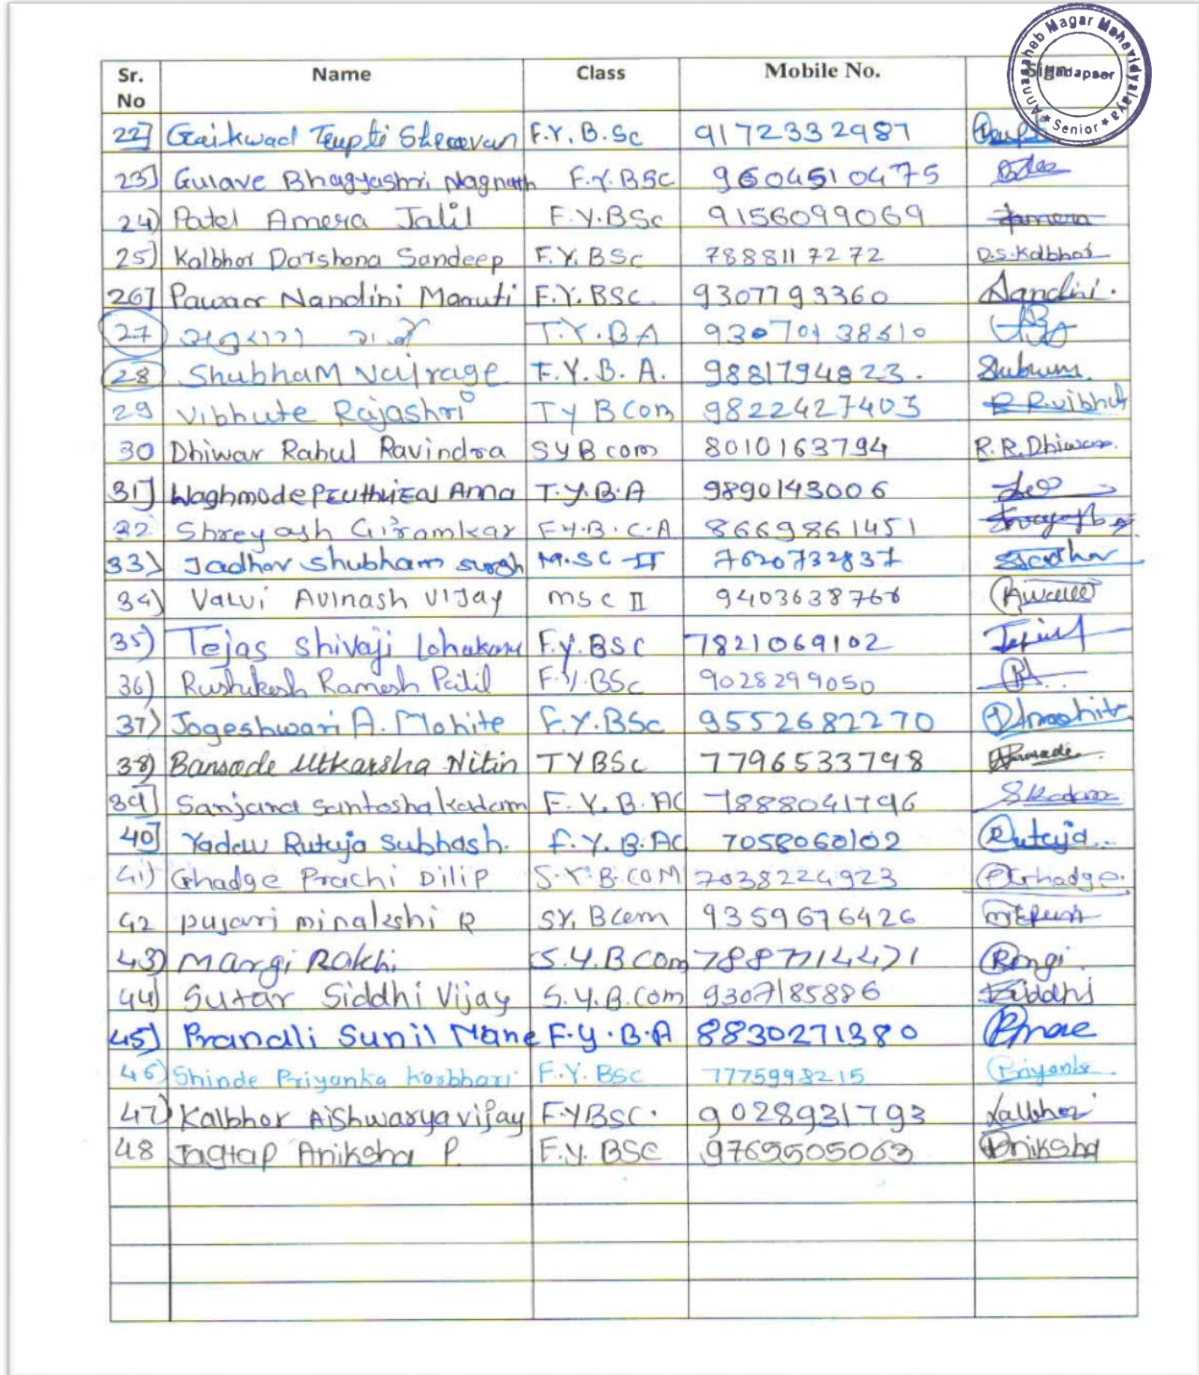 Annasaheb Magar Mahavidyalaya
Hadapser
★ Senior ★
Sr. No Name Class Mobile No. Sign
22] Gaikwad Trupti F.Y.B.Sc 9172332987
23) Gulave Bhagyashri Nagnath F.Y.BSC 9604510475
24) Patel Amera Jalil F.Y.BSc 9156099069 Amera
25) Kalbhor Darshana Sandeep F.Y.BSC 7888117272 D.S.Kalbhor
26] Pawar Nandini Maruti F.Y.BSC. 9307793360 Nandini.
27 T.Y.B.A
28 Shubham Vairage F.Y.B.A. 9881794823.
29 Vibhute Rajashri TY BCom 9822427403 R R vibhut
30 Dhiwar Rahul Ravindra SYB com 8010163794 R.R.Dhiwar.
31] Waghmode T.Y.B.A 9890143006
32 Shreyash Giramkar F.Y.B.C.A 8669861451
33) Jadhav Shubham M.SC II 7620732837
34) Valvi Avinash Vijay MSC II
35) Tejas Shivaji F.Y.BSC 7821069102
36) Rushikesh Ramesh Patil F.Y.BSc 9028299050
37) Jogeshwari A. Mohite F.Y.BSc 9552682270
38) Bansode Utkarsha Nitin TYBSc 7796533798
39] Sanjana Santosha kadam F.Y.B.AC 7888041796 SKadam
40] Yadav Rutuja Subhash. F.Y.B.AC 7058060102 Rutuja
41) Ghadge Prachi Dilip S.Y.B.COM 7038224923 PGhadge.
42 pujari minakshi R SY, BCom 9359676426
43) Margi Rakhi S.Y.BCom
44) Sutar Siddhi Vijay S.Y.B.Com 9307185886 Siddhi
45) Pranali Sunil Mane F.Y.B.A 8830271380 Pmane
46) Shinde Priyanka F.Y.BSC 7775998215 Priyanka
47) Kalbhor Aishwarya vijay F.YBSC. 9028931793 Kalbhor
48 Jagtap Aniksha P. F.Y.BSC 9765505063 Aniksha